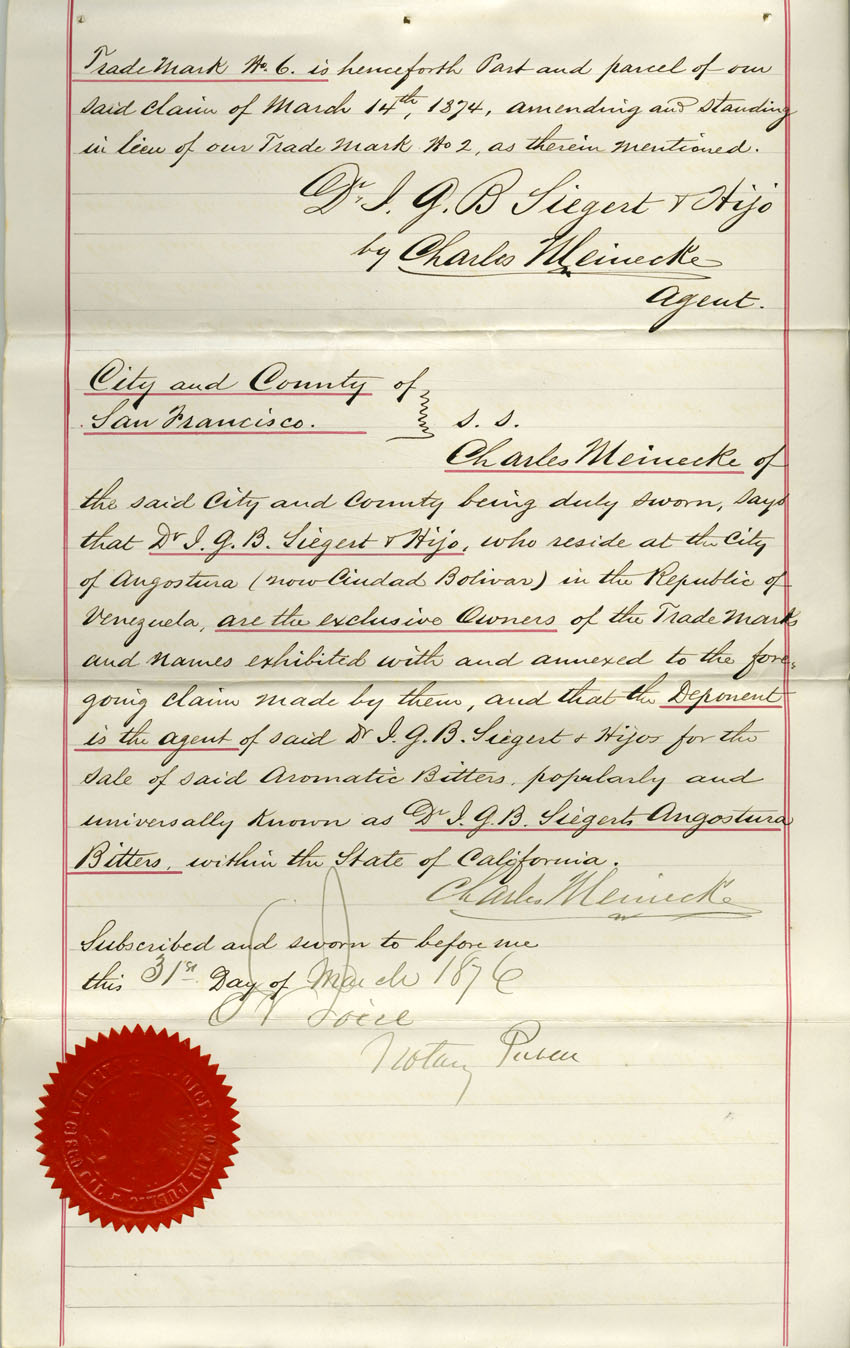 Trade Mark No. 6. is henceforth Part and parcel of our
said claim of March 14th, 1874, amending and standing
in lieu of our Trade Mark No 2, as therein mentioned.
Dr. J. G. B Siegert & Hijo
by Charles Meinecke
Agent.
City and County of
San Francisco.
s. s.
Charles Meinecke of
the said City and County being duly sworn, says
that Dr J. G. B. Siegert & Hijo, who reside at the City
of Angostura (now Ciudad Bolivar) in the Republic of
Venezuela, are the exclusive Owners of the Trade Marks
and names exhibited with and annexed to the fore-
going claim made by them, and that the Deponent
is the agent of said Dr J. G. B. Siegert & Hijos for the
sale of said Aromatic Bitters, popularly and
universally known as Dr J. G. B. Siegerts Angostura
Bitters, within the State of California.
Charles Meinecke
Subscribed and sworn to before me
this 31st Day of March 1876
Notary Public